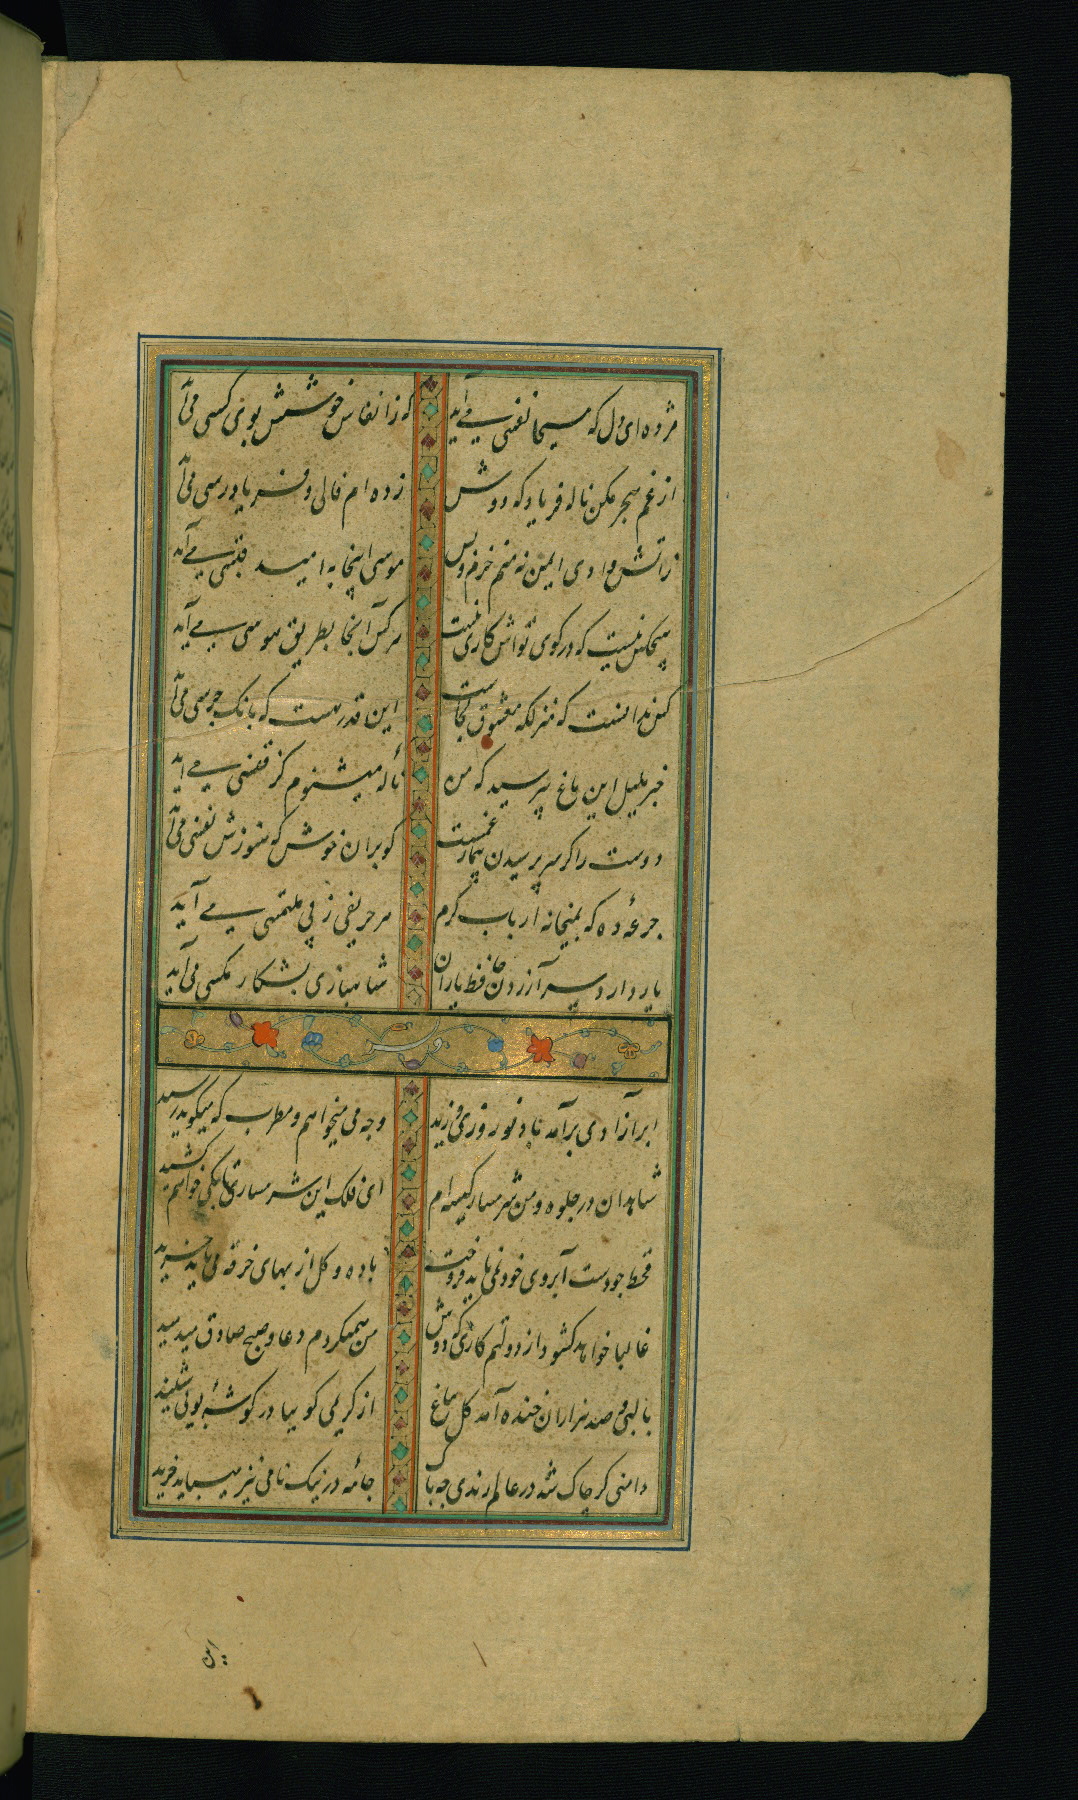 مژده ای دل که مسیحا نفسی می آید که ز انفاس خوشش بوی کسی می آید
از غم هجر مکن ناله و فریاد که دوش زده ام فالی و فریاد رسی می آید
ز آتش وادی ایمن نه منم خرم و بس موسی اینجا به امید قبسی می آید
هیچکس نیست که در کوی تواش کاری نیست هر کس آنجا بطریق هوسی می آید
کس ندانست که منزلگه معشوق کجاست این قدر هست که بانک جرسی می آید
خبر بلبل این باغ بپرسید که من ناله میشنوم کز قفسی می آید
دوست را گر سر پرسیدن بیمار غمست کو بران خوش که هنوزش نفسی می آید
جرعۀ ده که بمیخانه ارباب کرم هر حریفی ز پی ملتمسی می آید
یار دارد سر آزردن حافظ یاران شاهبازی بشکار مکسی می آید
وله
ابر آزادی برآمد باد نوروزی وزید وجه می میخواهم و مطرب که میکوید رسید
شاهدان در جلوه و من شرمسار کیسه ام ای فلک این شرمساری تا بکی خواهم کشید
قحط جودست آبروی خود نمی باید فروخت باده و کل از بهای خرقه می باید خرید
غالبا خواهد کشود از دولتم کاری که دوش من همیکردم دعا و صبح صادق میدمید
با لبی و صد هزاران خنده آمد کل بباغ از کریمی کوییا در کوشۀ بویی شنید
دامنی کر چاک شد در عالم رندی چه باک جامۀ در نیک نامی نیز میباید درید
این